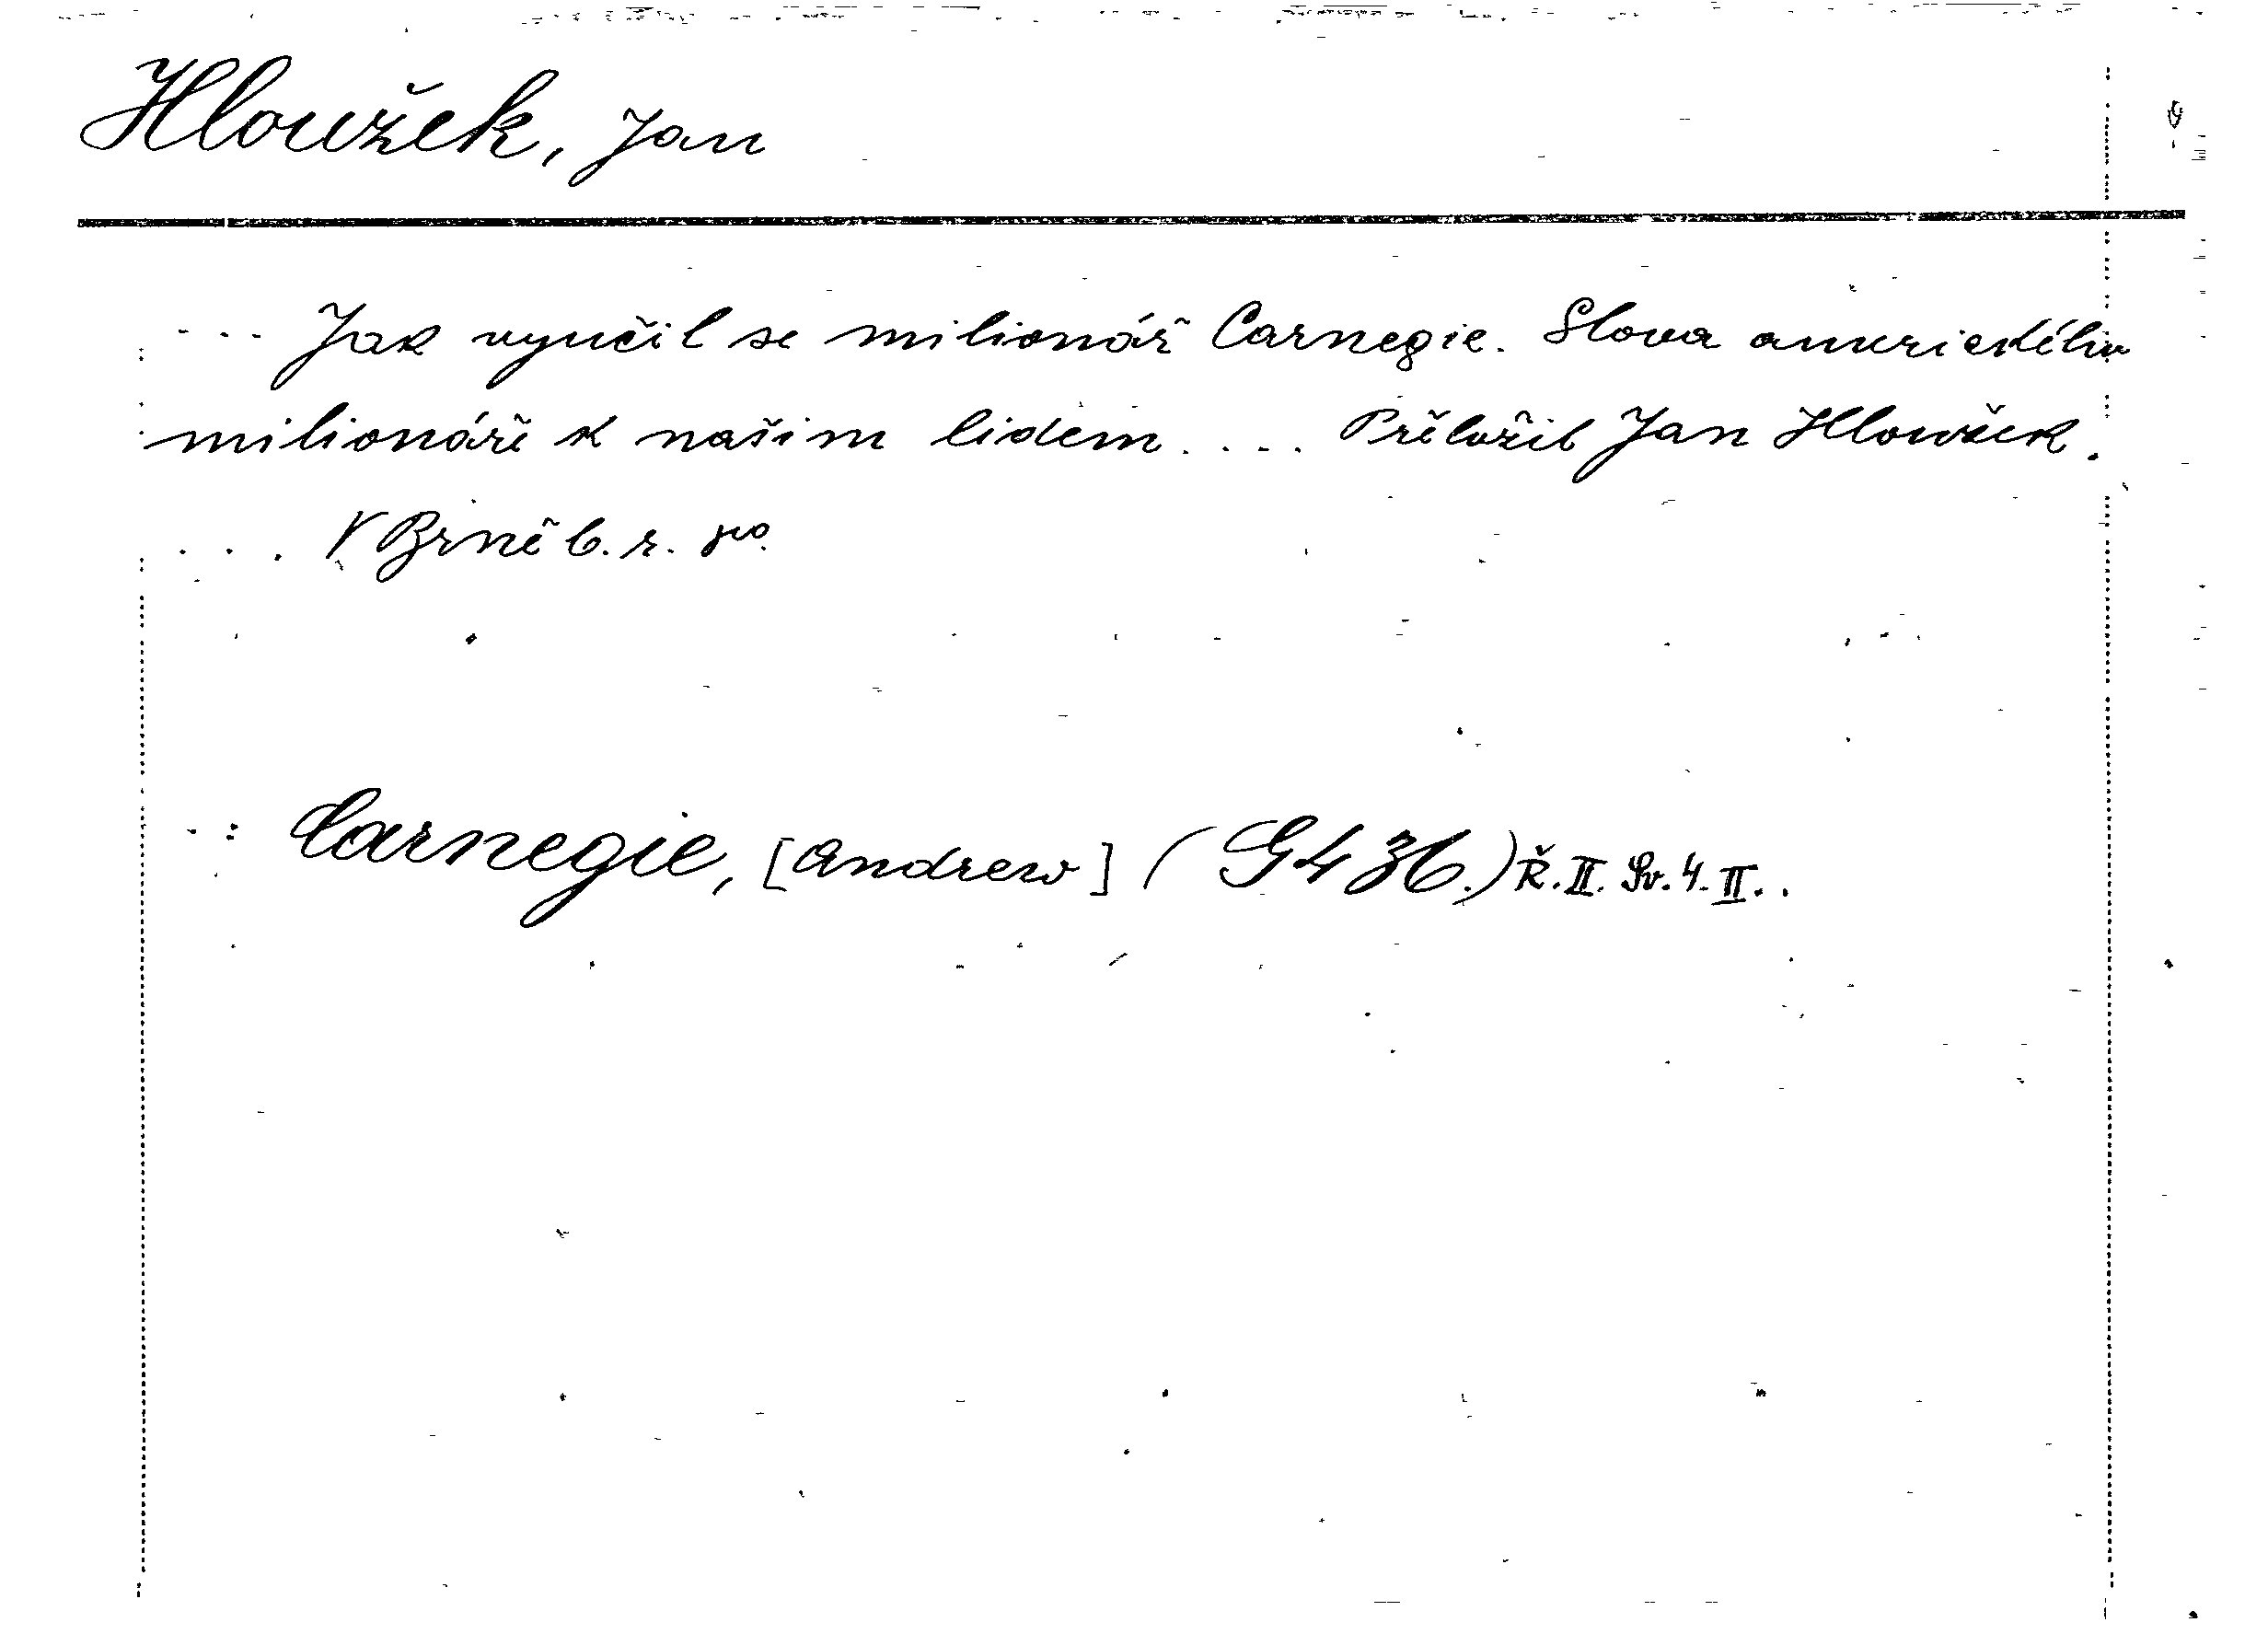 Hloužek, Jan
... Jak vyučil se milionář Carnegie. Slova amerického
milionáře k našim lidem.... Přeložil Jan Hloužek.
... V Brně b. r. 8vo.
: Carnegie, [Andrew] (G436.) Ř. II. Sv. 4. II..